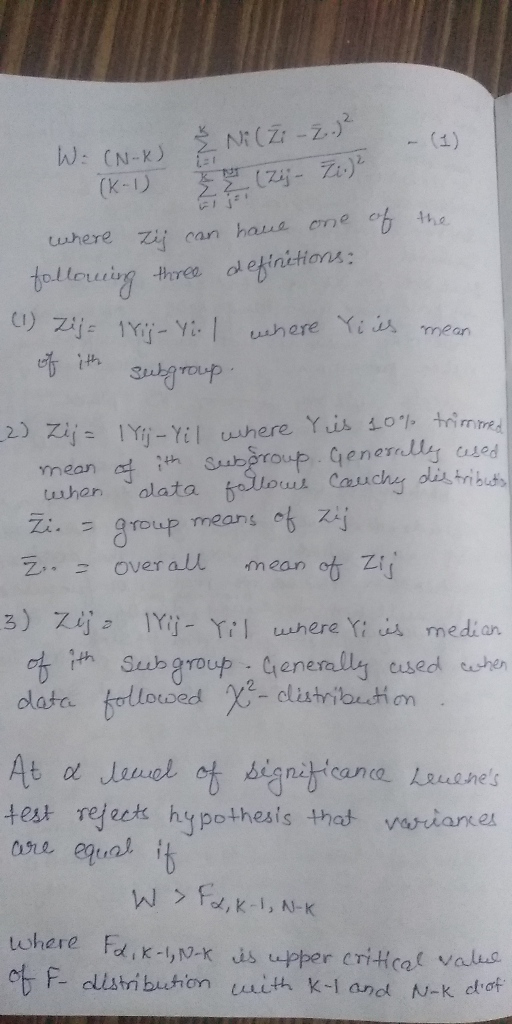 W = (N-K)/(K-1) · Σ_{i=1}^{K} Ni (Z̄i - Z̄..)² / Σ_{i=1}^{K} Σ_{j=1}^{Ni} (Zij - Z̄i.)² - (1)
where Zij can have one of the
following three definitions:
(1) Zij = |Yij - Yi.| where Yi is mean
of ith subgroup.
2) Zij = |Yij - Yi| where Y is 10% trimmed
mean of ith subgroup. Generally used
when data follows Cauchy distributio
Z̄i. = group means of Zij
Z̄.. = overall mean of Zij
3) Zij = |Yij - Yi| where Yi is median
of ith subgroup. Generally used when
data followed X²-distribution.
At α level of significance Levene's
test rejects hypothesis that variances
are equal if
W > Fα, K-1, N-K
where Fα, K-1, N-K is upper critical value
of F- distribution with K-1 and N-K d.of